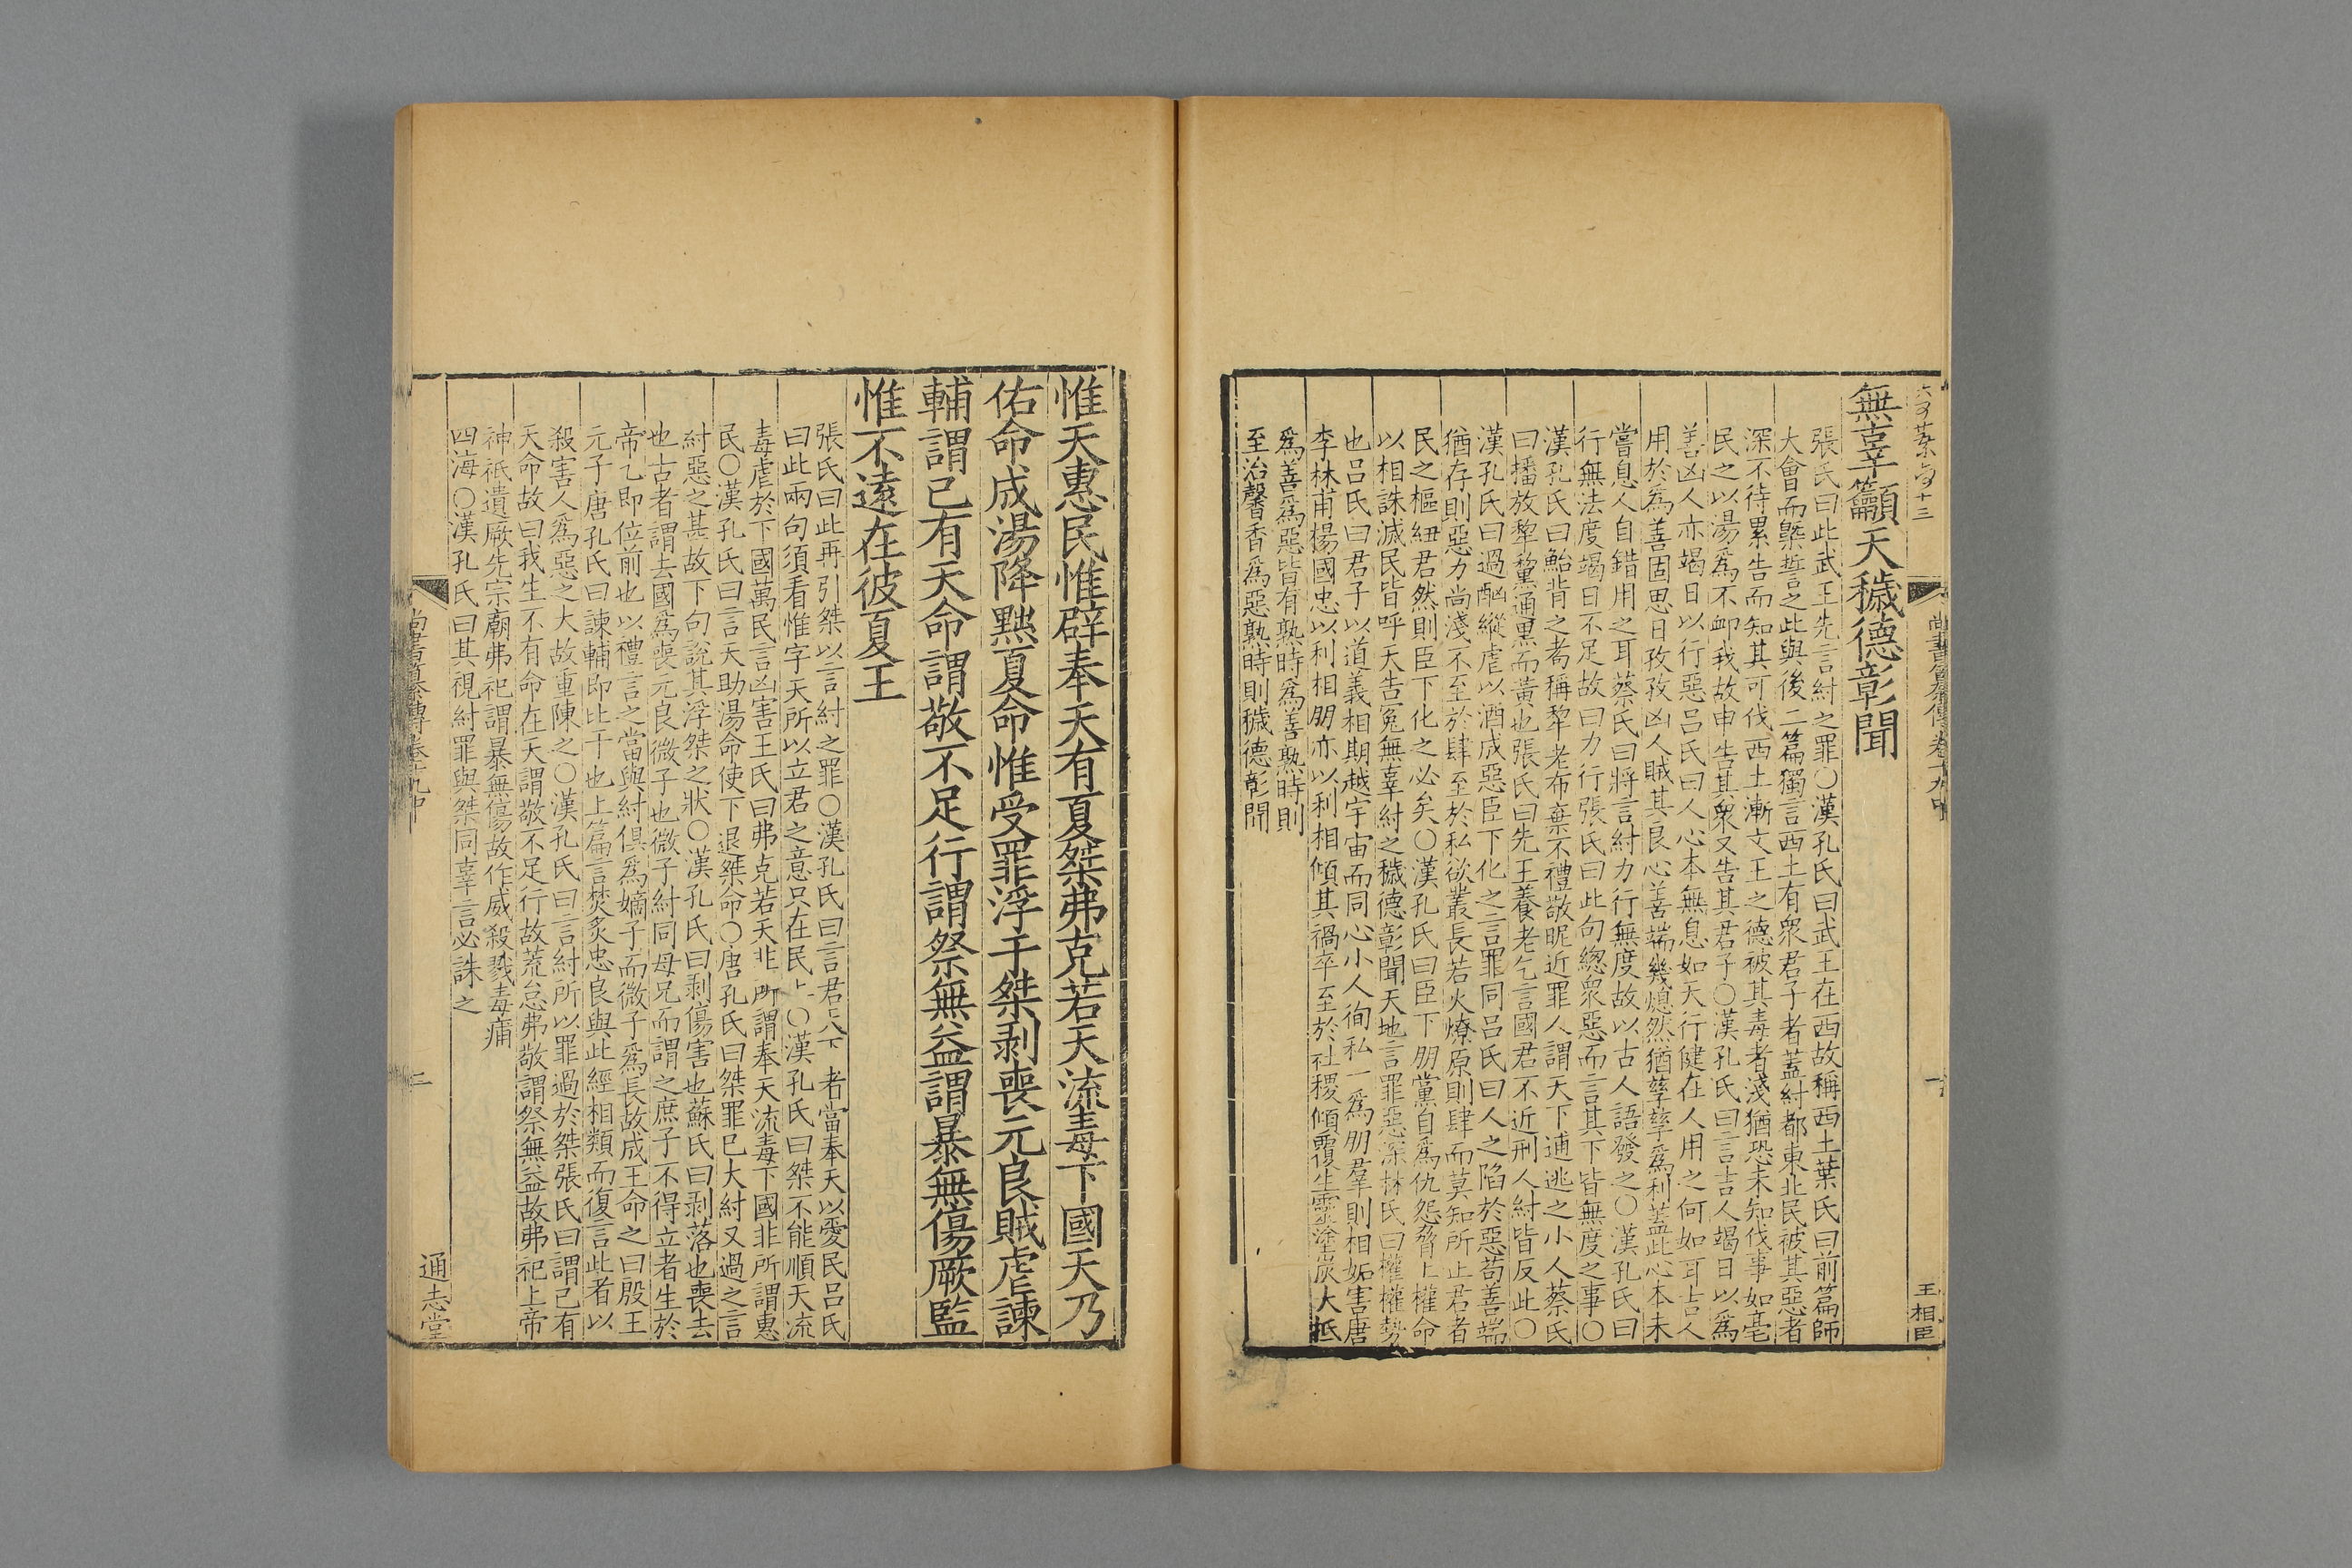 無辜籲天穢德彰聞
張氏曰此武王先言紂之罪○漢孔氏曰武王在西故稱西土葉氏曰前篇師
大會而槩誓之此與後二篇獨言西土有衆君子者蓋紂都東北民被其惡者
深不待累告而知其可伐西土漸文王之德被其毒者淺猶恐未知伐事如亳
民之以湯爲不衈我故申告其衆又告其君子○漢孔氏曰言吉人竭日以爲
善凶人亦竭日以行惡呂氏曰人心本無息如天行健在人用之何如耳吉人
用於爲善固思日孜孜凶人賊其良心善端幾熄然猶孳孳爲利蓋此心本未
嘗息人自錯用之耳蔡氏曰將言紂力行無度故以古人語發之○漢孔氏曰
行無法度竭日不足故曰力行張氏曰此句緫衆惡而言其下皆無度之事○
漢孔氏曰鮐背之耉稱犂老布棄不禮敬昵近罪人謂天下逋逃之小人蔡氏
曰播放犂黧通黑而黃也張氏曰先王養老乞言國君不近刑人紂皆反此○
漢孔氏曰過酗縱虐以酒成惡臣下化之言罪同呂氏曰人之陷於惡苟善端
猶存則惡力尚淺不至於肆至於私欲叢長若火燎原則肆而莫知所止君者
民之樞紐君然則臣下化之必矣○漢孔氏曰臣下朋黨自爲仇怨脅上權命
以相誅滅民皆呼天告冤無辜紂之穢德彰聞天地言罪惡深林氏曰權權勢
也呂氏曰君子以道義相期越宇宙而同心小人徇私一爲朋羣則相妬害唐
李林甫楊國忠以利相朋亦以利相傾其禍卒至於社稷傾覆生靈塗炭大抵
爲善爲惡皆有熟時爲善熟時則
至治馨香爲惡熟時則穢德彰聞
尚書纂傳卷十九中
一
王相臣
惟天惠民惟辟奉天有夏桀弗克若天流毒下國天乃
佑命成湯降黜夏命惟受罪浮于桀剥喪元良賊虐諫
輔謂己有天命謂敬不足行謂祭無益謂暴無傷厥監
惟不遠在彼夏王
張氏曰此再引桀以言紂之罪○漢孔氏曰言君天下者當奉天以愛民呂氏
曰此兩句須看惟字天所以立君之意只在民上○漢孔氏曰桀不能順天流
毒虐於下國萬民言凶害王氏曰弗克若天非所謂奉天流毒下國非所謂惠
民○漢孔氏曰言天助湯命使下退桀命○唐孔氏曰桀罪已大紂又過之言
紂惡之甚故下句說其浮桀之狀○漢孔氏曰剥傷害也蘇氏曰剥落也喪去
也古者謂去國爲喪元良微子也微子紂同母兄而謂之庶子不得立者生於
帝乙即位前也以禮言之當與紂俱爲嫡子而微子爲長故成王命之曰殷王
元子唐孔氏曰諫輔即比干也上篇言焚炙忠良與此經相類而復言此者以
殺害人爲惡之大故重陳之○漢孔氏曰言紂所以罪過於桀張氏曰謂己有
天命故曰我生不有命在天謂敬不足行故荒怠弗敬謂祭無益故弗祀上帝
神祇遺厥先宗廟弗祀謂暴無傷故作威殺戮毒痡
四海○漢孔氏曰其視紂罪與桀同辜言必誅之
尚書纂傳卷十九中
二
通志堂